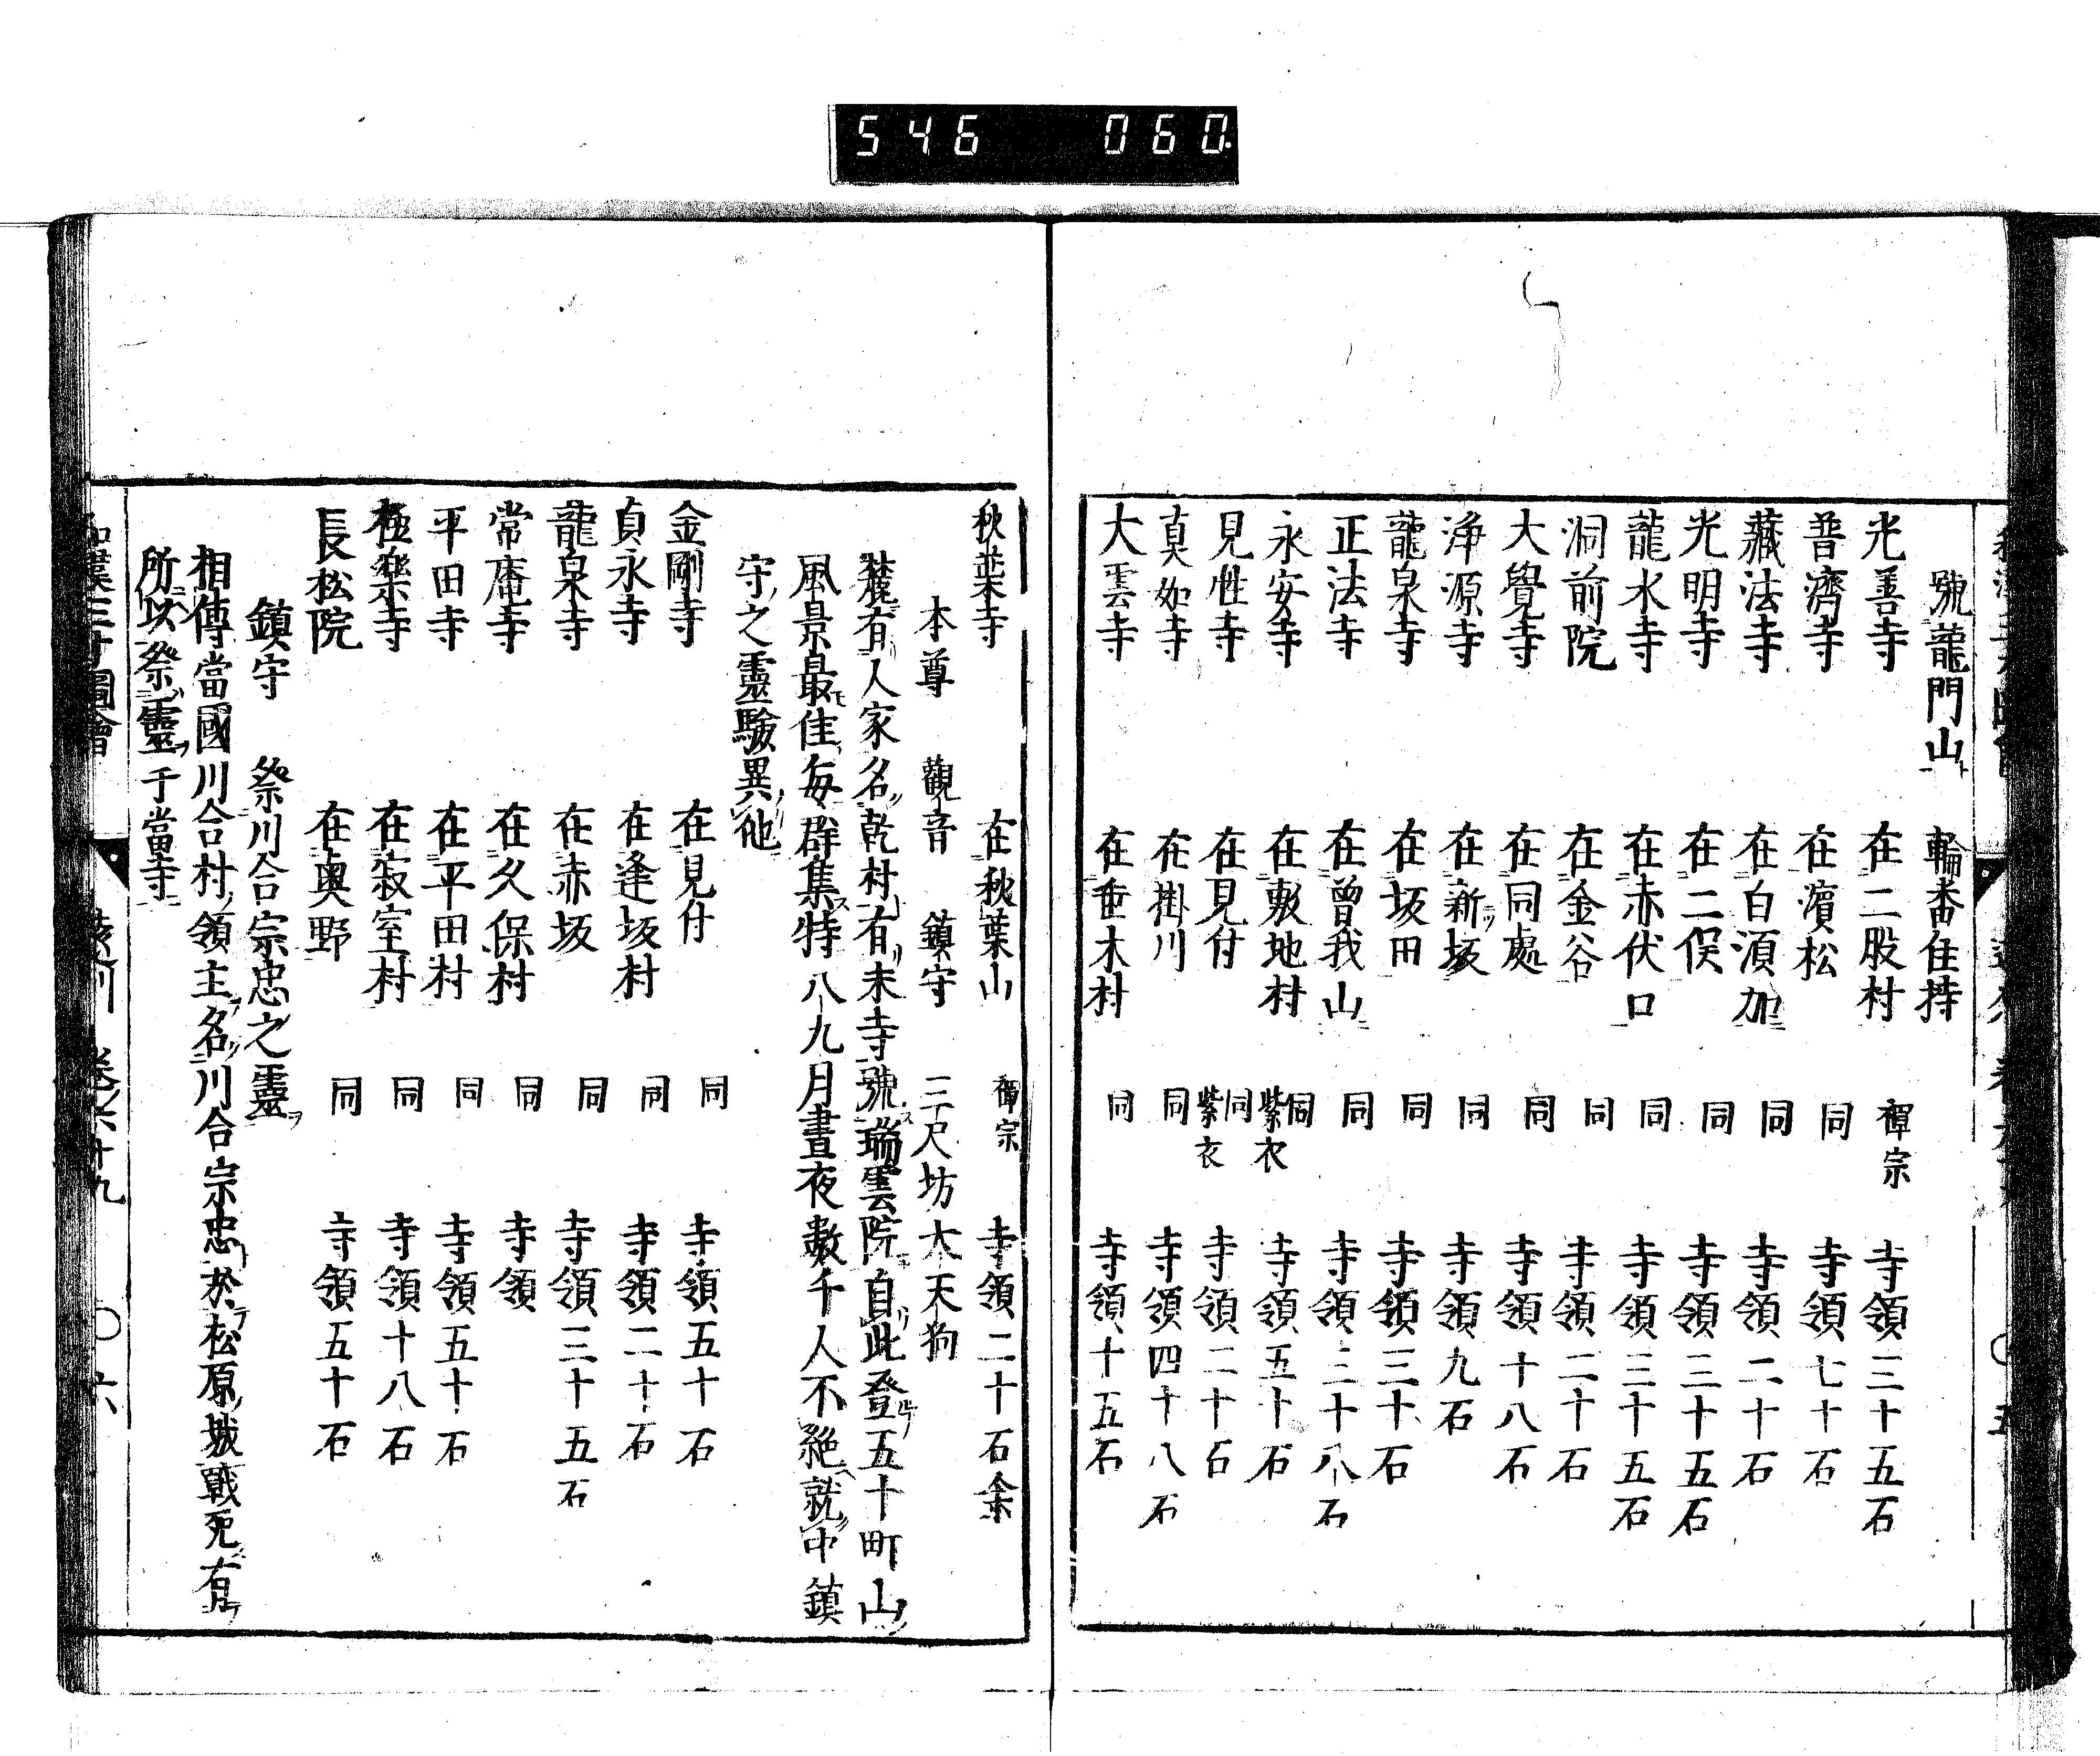 546 060
號龍門山 輪番住持
光善寺 在二股村 禪宗 寺領三十五石
普濟寺 在濱松 同 寺領七十石
藏法寺 在白須加 同 寺領二十石
光明寺 在二俣 同 寺領三十五石
龍水寺 在赤伏口 同 寺領三十五石
洞前院 在金谷 同 寺領二十石
大覺寺 在同處 同 寺領十八石
浄源寺 在新坂 同 寺領九石
龍泉寺 在坂田 同 寺領三十石
正法寺 在曽我山 同 寺領三十八石
永安寺 在敷地村 同紫衣 寺領五十石
見性寺 在見付 同紫衣 寺領二十石
真如寺 在掛川 同 寺領四十八石
大雲寺 在垂木村 同 寺領十五石
秋葉寺 在秋葉山 禪宗 寺領二十石余
本尊 觀音 鎮守 三尺坊大天狗
麓有人家名乾村有末寺號瑞雲院自此登五十町山
風景最佳毎群集特八九月晝夜數千人不絶就中鎮
守之靈驗異他
金剛寺 在見付 同 寺領五十石
貞永寺 在逢坂村 同 寺領二十石
龍泉寺 在赤坂 同 寺領三十五石
常庵寺 在久保村 同 寺領
平田寺 在平田村 同 寺領五十石
極樂寺 在寂室村 同 寺領十八石
長松院 在奥野 同 寺領五十石
鎮守 祭川合宗忠之靈
相傳當國川合村領主名川合宗忠於松原城戰死有
所以祭靈于當寺
三才圖會 遠州 巻六十九 〇六